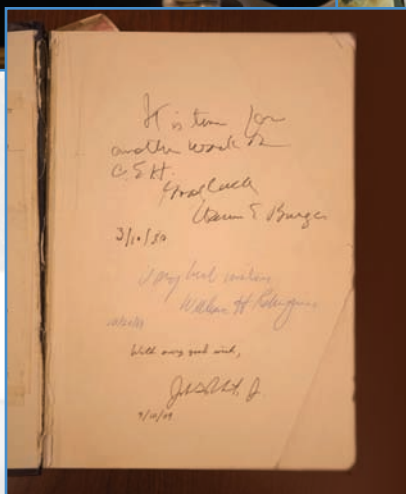 It is time for
another work on
C E H.
Good luck
Warren E Burger
3/10/
Very best wishes
William H Rehnquist
With every good wish,
Jr.
9/10/09